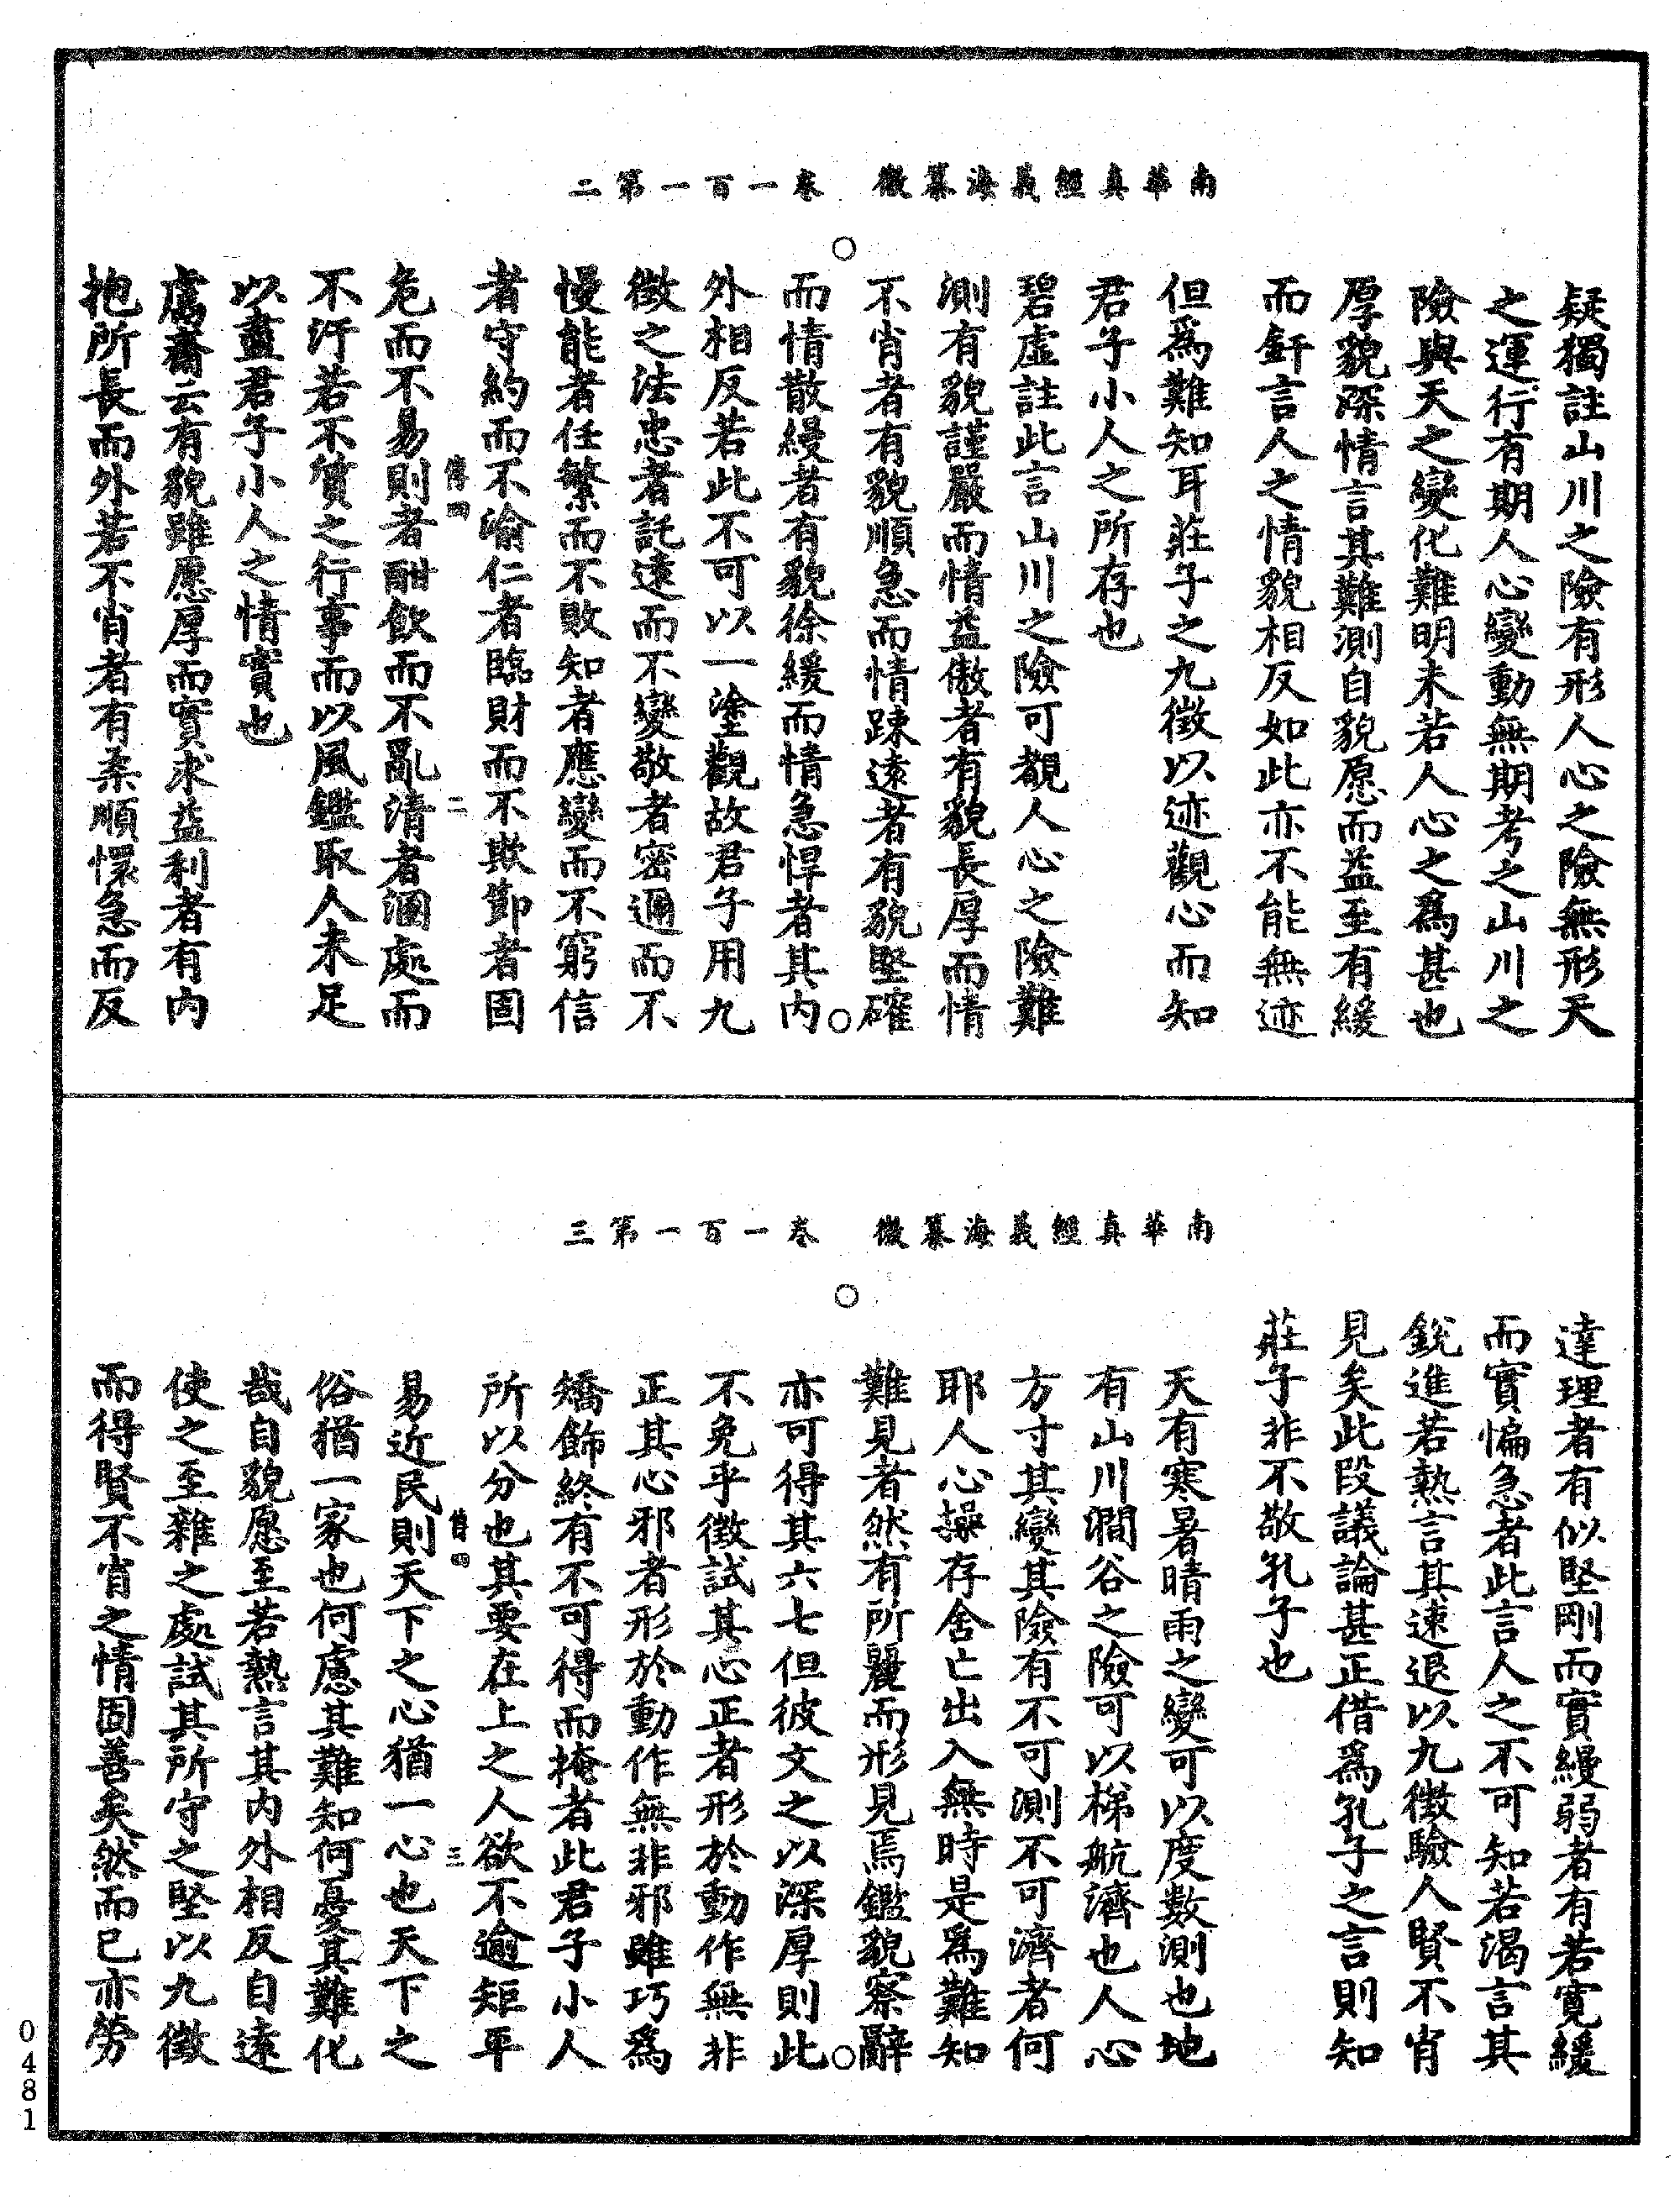 南華真經義海纂微　卷一百一第二
疑獨註山川之險有形人心之險無形天
之運行有期人心變動無期考之山川之
險與天之變化難明未若人心之爲甚也
厚貌深情言其難測自貌愿而益至有緩
而釬言人之情貌相反如此亦不能無迹
但爲難知耳莊子之九徵以迹觀心而知
君子小人之所存也
碧虛註此言山川之險可覩人心之險難
測有貌謹嚴而情益傲者有貌長厚而情
不肖者有貌順急而情踈遠者有貌堅確
而情散縵者有貌徐緩而情急悍者其内
外相反若此不可以一塗觀故君子用九
徵之法忠者託遠而不變敬者密邇而不
慢能者任繁而不敗知者應變而不窮信
者守約而不渝仁者臨財而不欺節者固
二
危而不易則者酣飲而不亂清者溷處而
不汙若不質之行事而以風鑑取人未足
以盡君子小人之情實也
鬳齋云有貌雖愿厚而實求益利者有内
抱所長而外若不肖者有柔順懁急而反
南華真經義海纂微　卷一百一第三
達理者有似堅剛而實縵弱者有若寬緩
而實惼急者此言人之不可知若渴言其
銳進若熱言其速退以九徵驗人賢不肖
見矣此段議論甚正借爲孔子之言則知
莊子非不敬孔子也
天有寒暑晴雨之變可以度數測也地
有山川澗谷之險可以梯航濟也人心
方寸其變其險有不可測不可濟者何
耶人心操存舍亡出入無時是爲難知
難見者然有所麗而形見焉鑑貌察辭
亦可得其六七但彼文之以深厚則此
不免乎徵試其心正者形於動作無非
正其心邪者形於動作無非邪雖巧爲
矯飾終有不可得而掩者此君子小人
所以分也其要在上之人欲不逾矩平
三
易近民則天下之心猶一心也天下之
俗猶一家也何慮其難知何憂其難化
哉自貌愿至若熱言其内外相反自遠
使之至雜之處試其所守之堅以九徵
而得賢不肖之情固善矣然而已亦勞
0481